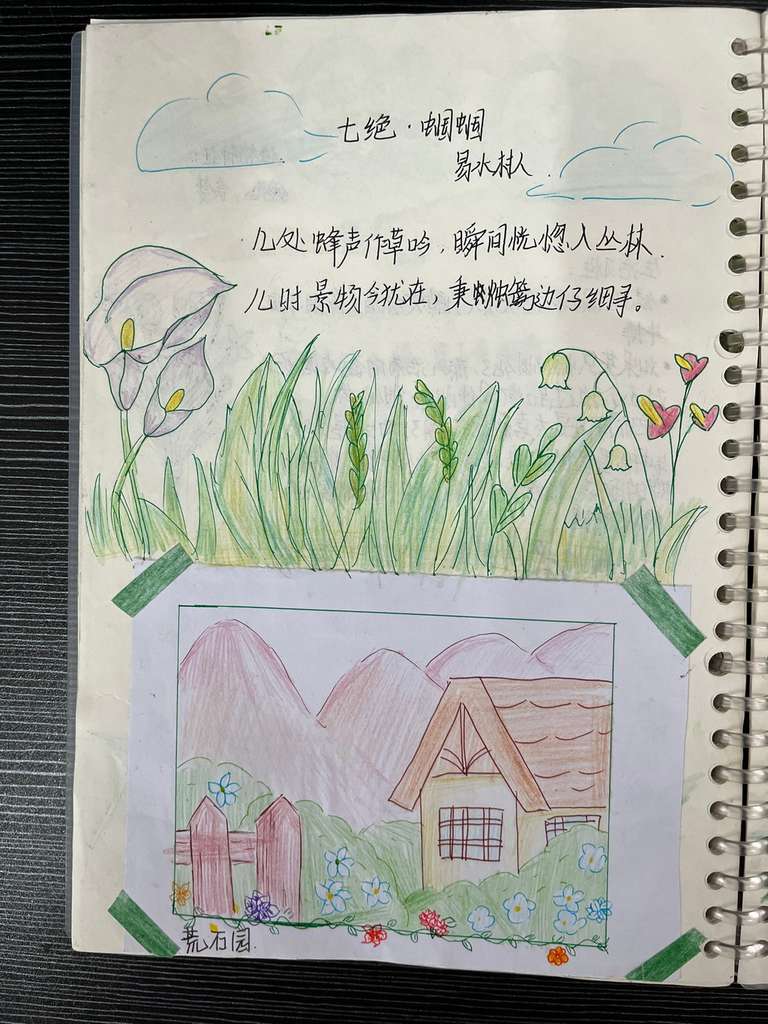 七绝·蝈蝈
易水村人
几处蜂声作草吟,瞬间恍惚入丛林.
儿时景物今犹在,秉烛篱边仔细寻。
荒石园.